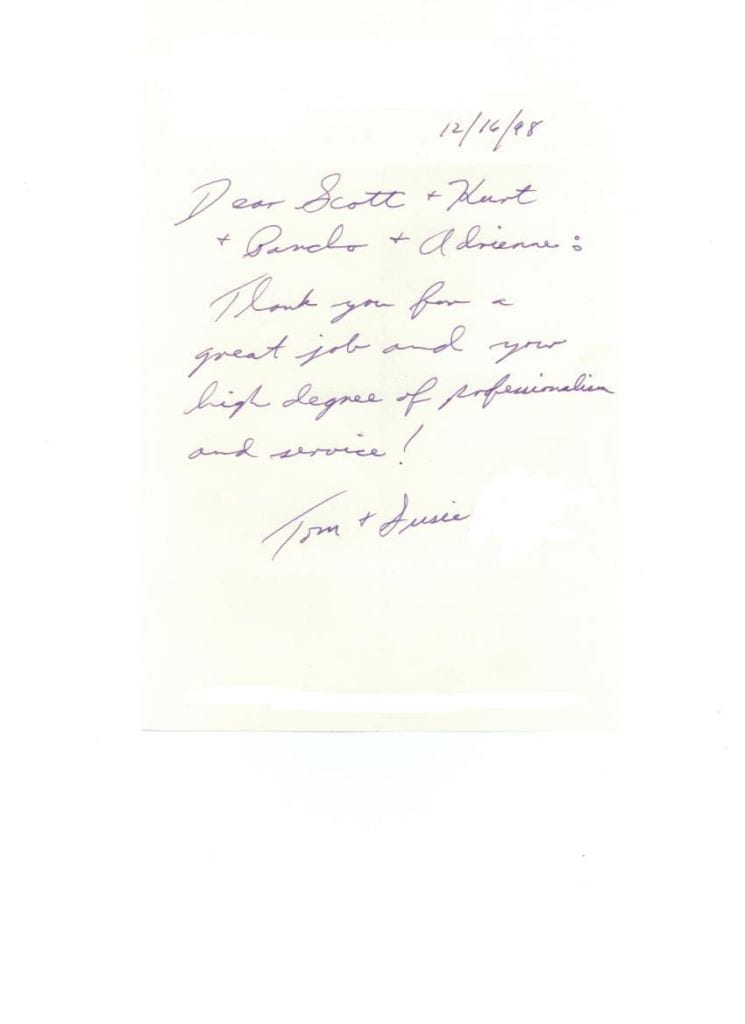 12/16/98
Dear Scott + Kurt
+ Pancho + Adrienne:
Thank you for a
great job and your
high degree of professionalism
and service!
Tom + Susie